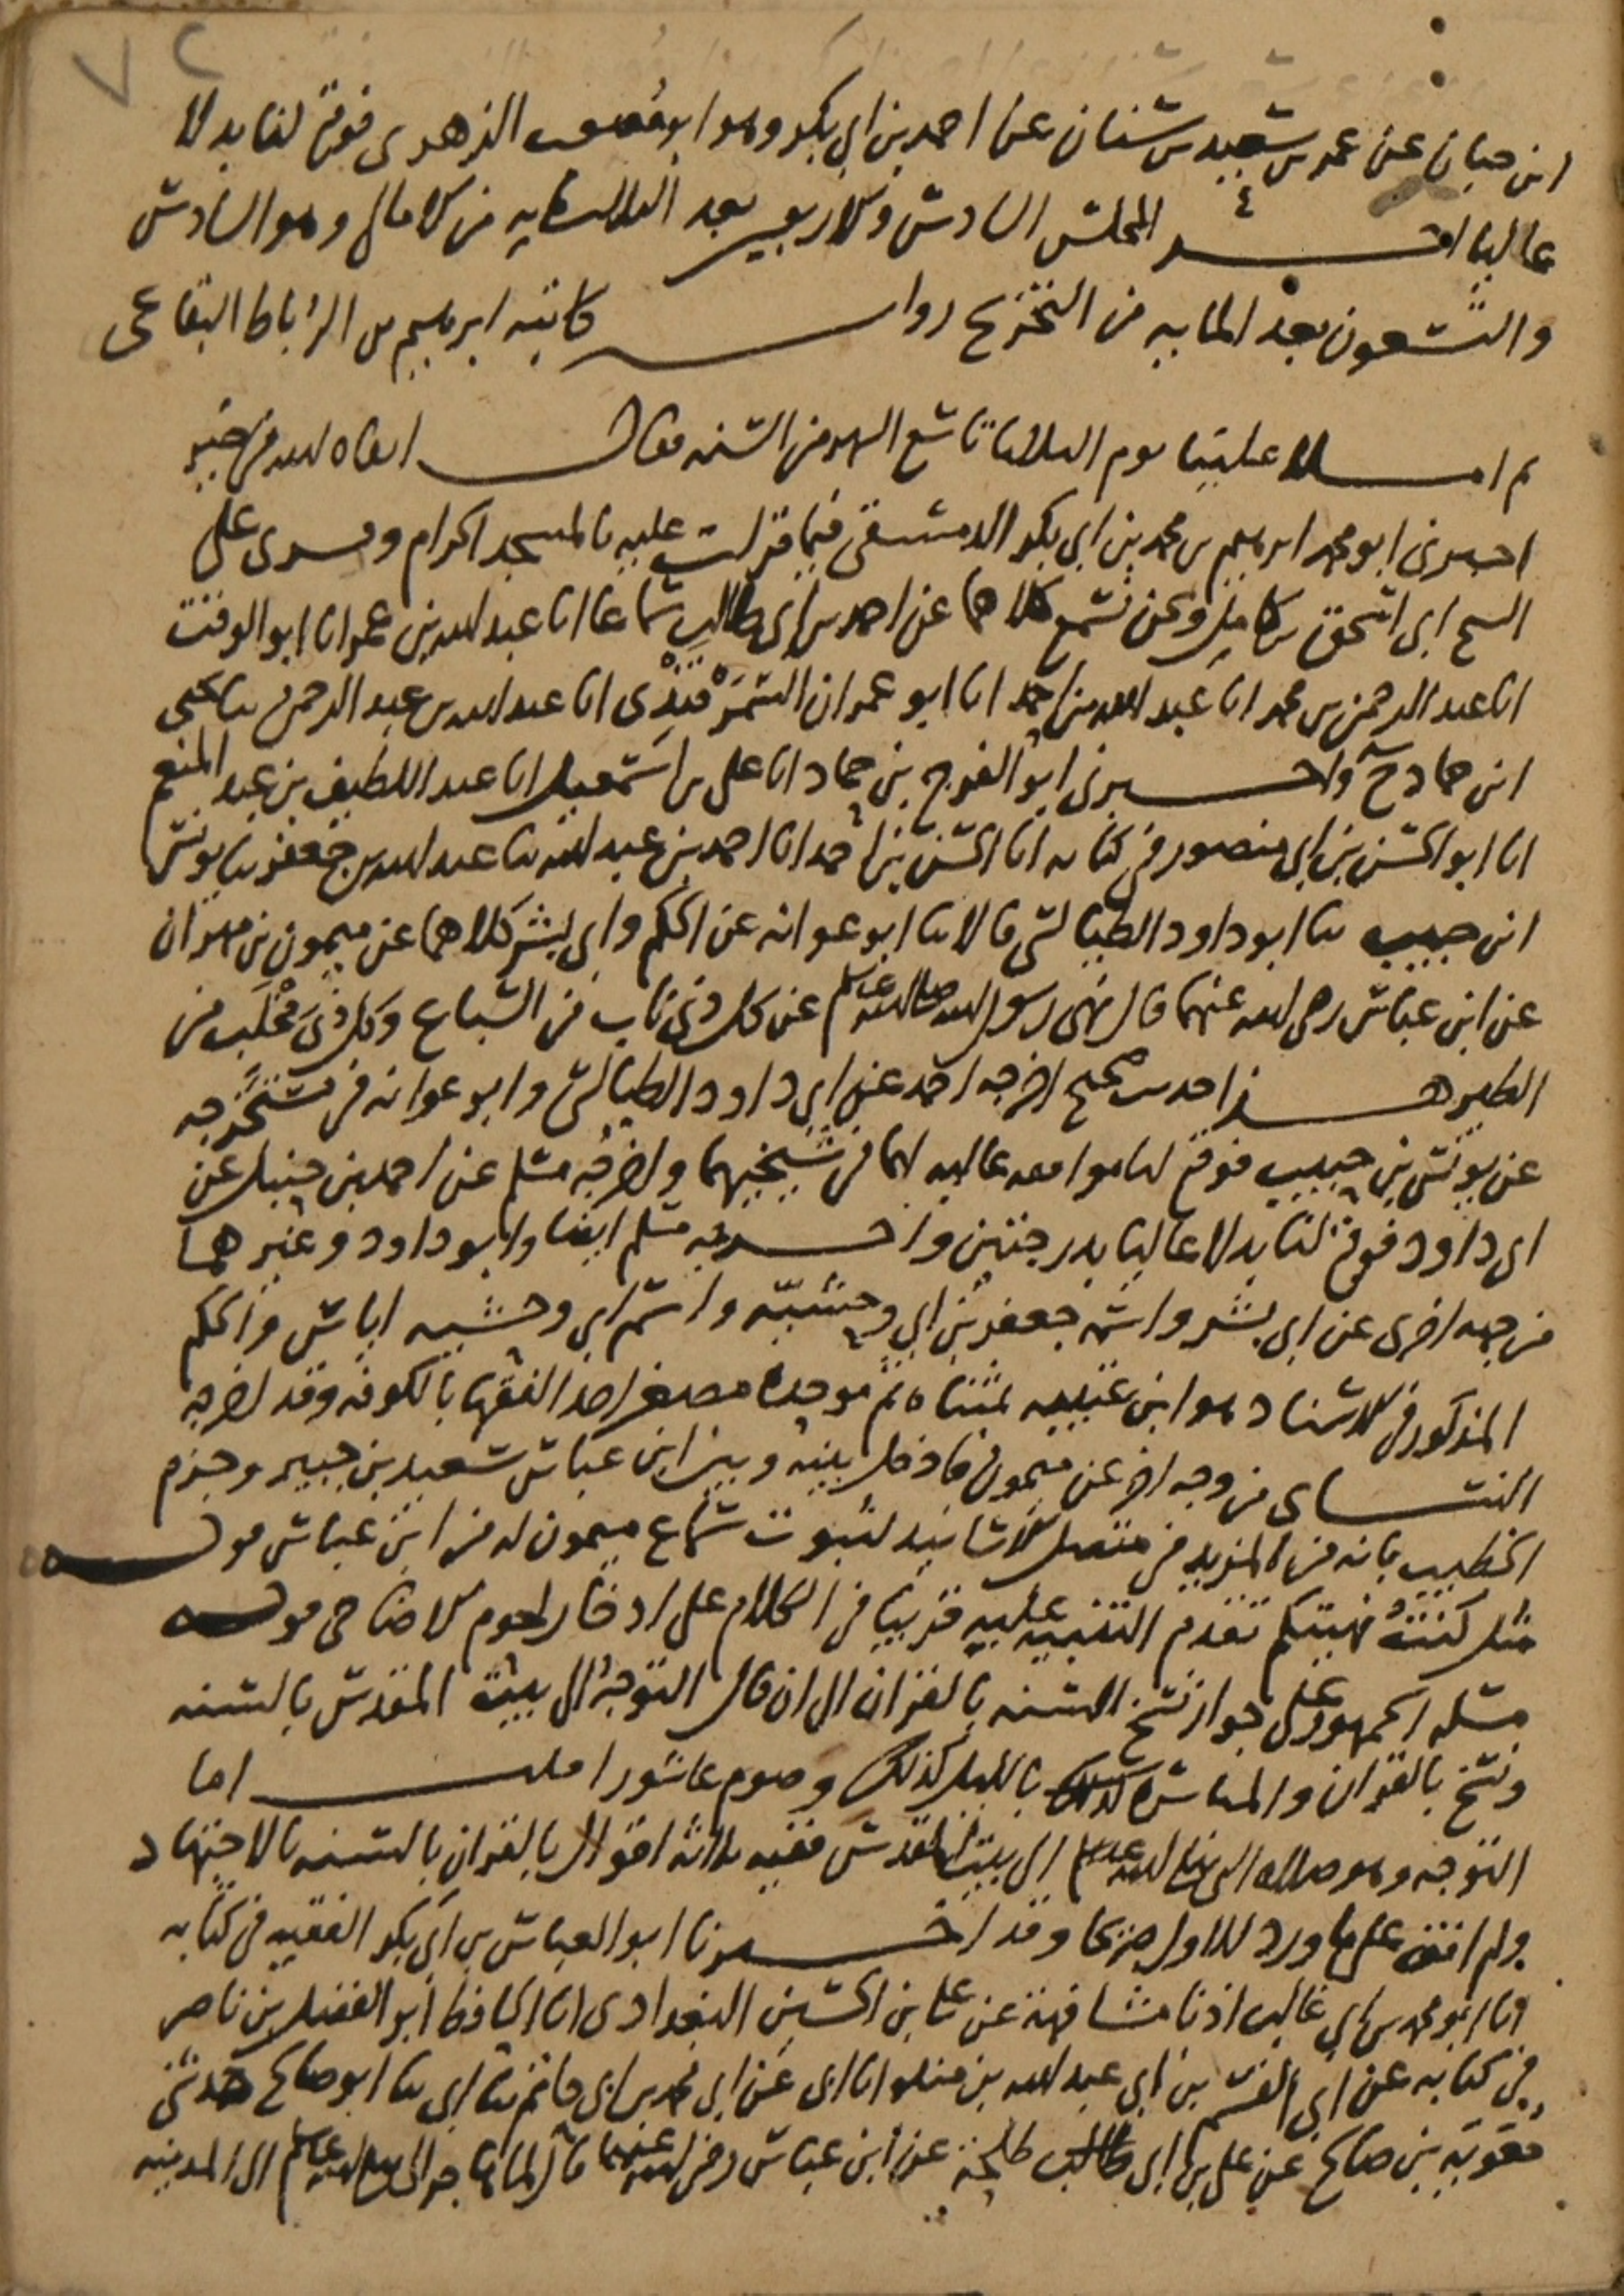 ٧٢
ابن حبان عن عمر بن سعيد بن سنان عن احمد بن ابي بكر وهو ابو مصعب الزهري فوقع لنا بدلا
عاليا اخر المجلس السادس والاربعين بعد الثلاثمايه من الامالي وهو السادس
والتسعون بعد المايه من التخريج رواية كاتبه ابرهيم بن الرباط البقاعي
ثم املا علينا يوم الثلاثا تاسع الشهر من السنه فقال ابقاه الله في خير
اخبرني ابو محمد ابرهيم بن محمد بن ابي بكر الدمشقي فيما قرات عليه بالمسجد الحرام وقري على
الشيخ ابي اسحق بن كامل ونحن نسمع كلاهما عن احمد بن ابي طالب سماعا انا عبد الله بن عمر انا ابو الوقت
انا عبد الرحمن بن محمد انا عبد الله بن احمد انا ابو عمران السمرقندي انا عبد الله بن عبد الرحمن ثنا يحيى
ابن حماد ح واخبرني ابو الفرج بن حماد انا علي بن اسمعيل انا عبد اللطيف بن عبد المنعم
انا ابو الحسن بن ابي منصور في كتابه انا الحسن بن احمد انا احمد بن عبد الله ثنا عبد الله بن جعفر ثنا يونس
ابن حبيب ثنا ابو داود الطيالسي قالا ثنا ابو عوانه عن الحكم وابي بشر كلاهما عن ميمون بن مهران
عن ابن عباس رضي الله عنهما قال نهى رسول الله صلى الله عليه وسلم عن كل ذي ناب من السباع وكل ذي مخلب من
الطير هذا حديث صحيح اخرجه احمد عن ابي داود الطيالسي وابو عوانه في مستخرجه
عن يونس بن حبيب فوقع لنا موافقه عاليه لهما في شيخيهما واخرجه مسلم عن احمد بن حنبل عن
ابي داود فوقع لنا بدلا عاليا بدرجتين واخرجه مسلم ايضا وابو داود وغيرهما
من جهه اخرى عن ابي بشر واسمه جعفر بن ابي وحشيه واسم ابي وحشيه اياس والحكم
المذكور في الاسناد هو ابن عتيبه بمثناه ثم موحده مصغر احد الفقها بالكوفه وقد اخرجه
النساي من وجه اخر عن ميمون فادخل بينه وبين ابن عباس سعيد بن جبير وجزم
الخطيب بانه من المزيد في متصل الاسانيد لثبوت سماع ميمون له من ابن عباس قوله
مثل كنت نهيتكم تقدم التنبيه عليه قريبا في الكلام على ادخار لحوم الاضاحي قوله
مسله الجمهور على جواز نسخ السنه بالقران الى ان قال التوجه الى بيت المقدس بالسنه
ونسخ بالقران والمباشره بالليل كذلك وصوم عاشورا قلت اما
التوجه وهو صلاه النبي صلى الله عليه وسلم الى بيت المقدس ففيه ثلاثه اقوال بالقران بالسنه بالاجتهاد
ولم اقف على ما ورد للاول صريحا وقد اخبرنا ابو العباس بن ابي بكر الفقيه في كتابه
انا ابو محمد بن ابي غالب اذنا مشافهة عن علي بن الحسين البغدادي انا الحافظ ابو الفضل بن ناصر
في كتابه عن ابي القسم بن ابي عبد الله بن منده انا ابي عن ابي محمد بن ابي حاتم ثنا ابي ثنا ابو صالح حدثني
معويه بن صالح عن علي بن ابي طلحة عن ابن عباس رضي الله عنهما قال لما هاجر النبي صلى الله عليه وسلم الى المدينه